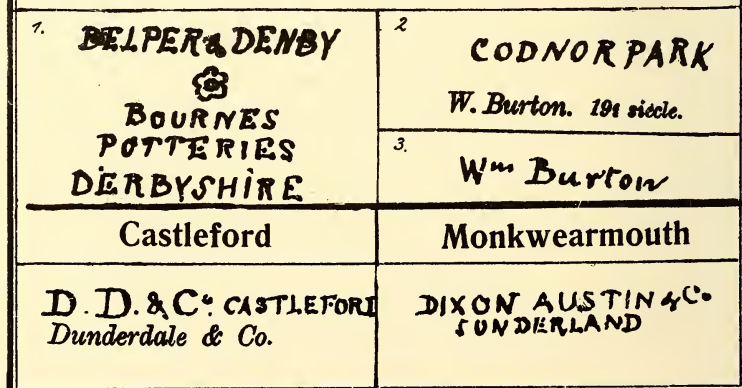 1.
BELPER & DENBY
BOURNES
POTTERIES
DERBYSHIRE
2
CODNOR PARK
W. Burton. 19e siècle.
3.
Wm Burton
Castleford
D. D. & Co. CASTLEFORD
Dunderdale & Co.
Monkwearmouth
DIXON AUSTIN & Co
SUNDERLAND